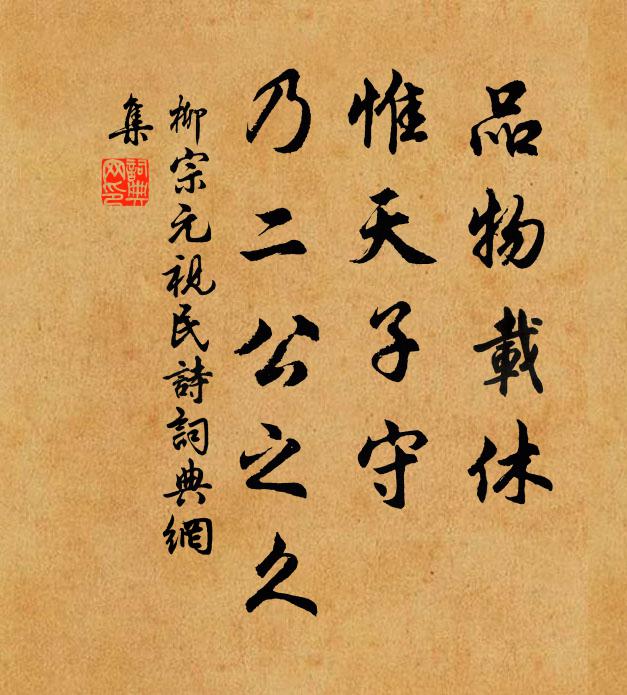 品物載休
惟天子守
乃二公之久
柳宗元視民詩詞典網
集
詞典
网印